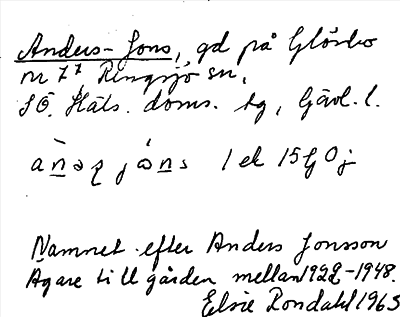 Anders-Jons, gd på Glösbo
nr 7⁷ Ringsjö sn,
SÖ. Häls. doms. tg, Gävl. l.
àn̲əʐ jón̲s 1 ek 15G0j
Namnet efter Anders Jonsson
Ägare till gården mellan 1922-1948.
Elsie Rondahl 1963